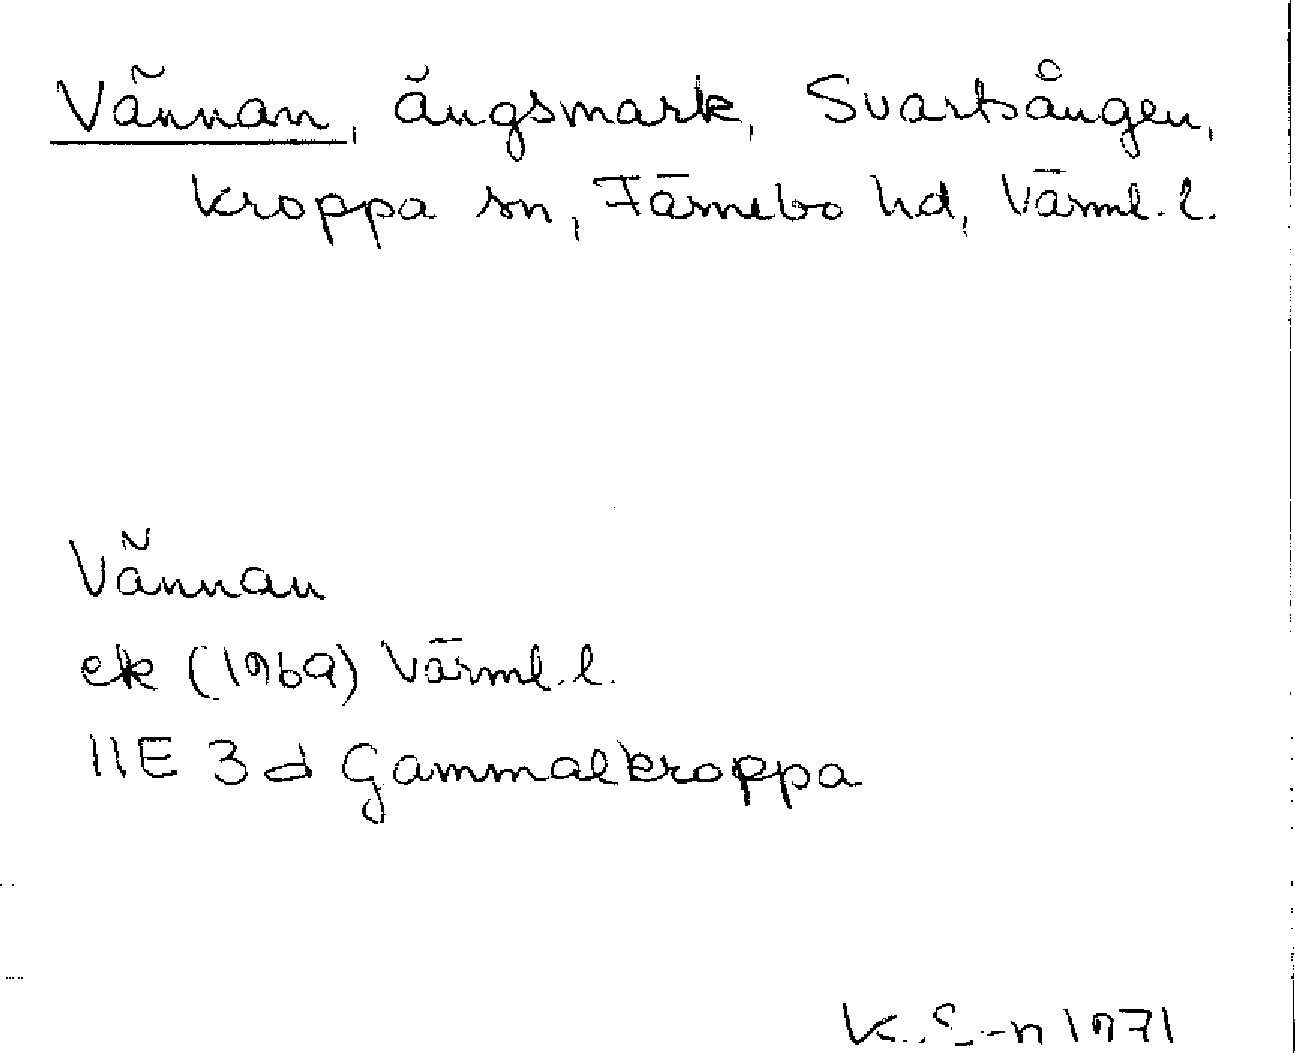 Vännan, ängsmark, Svartsången,
Kroppa sn, Färnebo hd, Värml. l.
Vännan
ek (1969) Värml. l.
11E 3d Gammalkroppa
K. S-n 1971